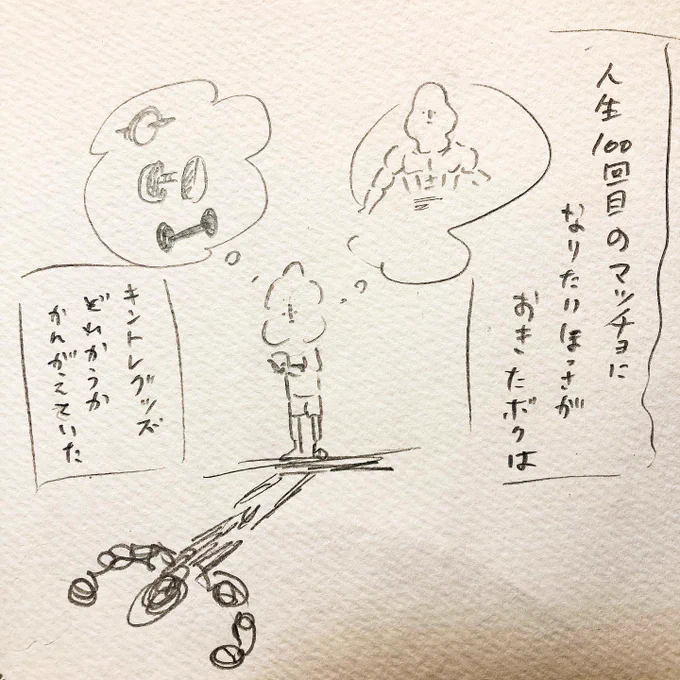 人生100回目のマッチョに
なりたいほっさが
おきたボクは
キントレグッズ
どれかうか
かんがえていた